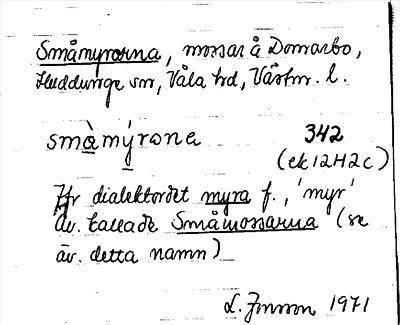 Småmyrorna, mossar å Domarbo,
Huddunge sn, Våla hd, Västm. l.
smàmýrone 342
(ek 12H2c)
Jfr dialektordet myra f., 'myr'
Äv. kallade Småmossarna (se
äv. detta namn)
L. Jonsson 1971